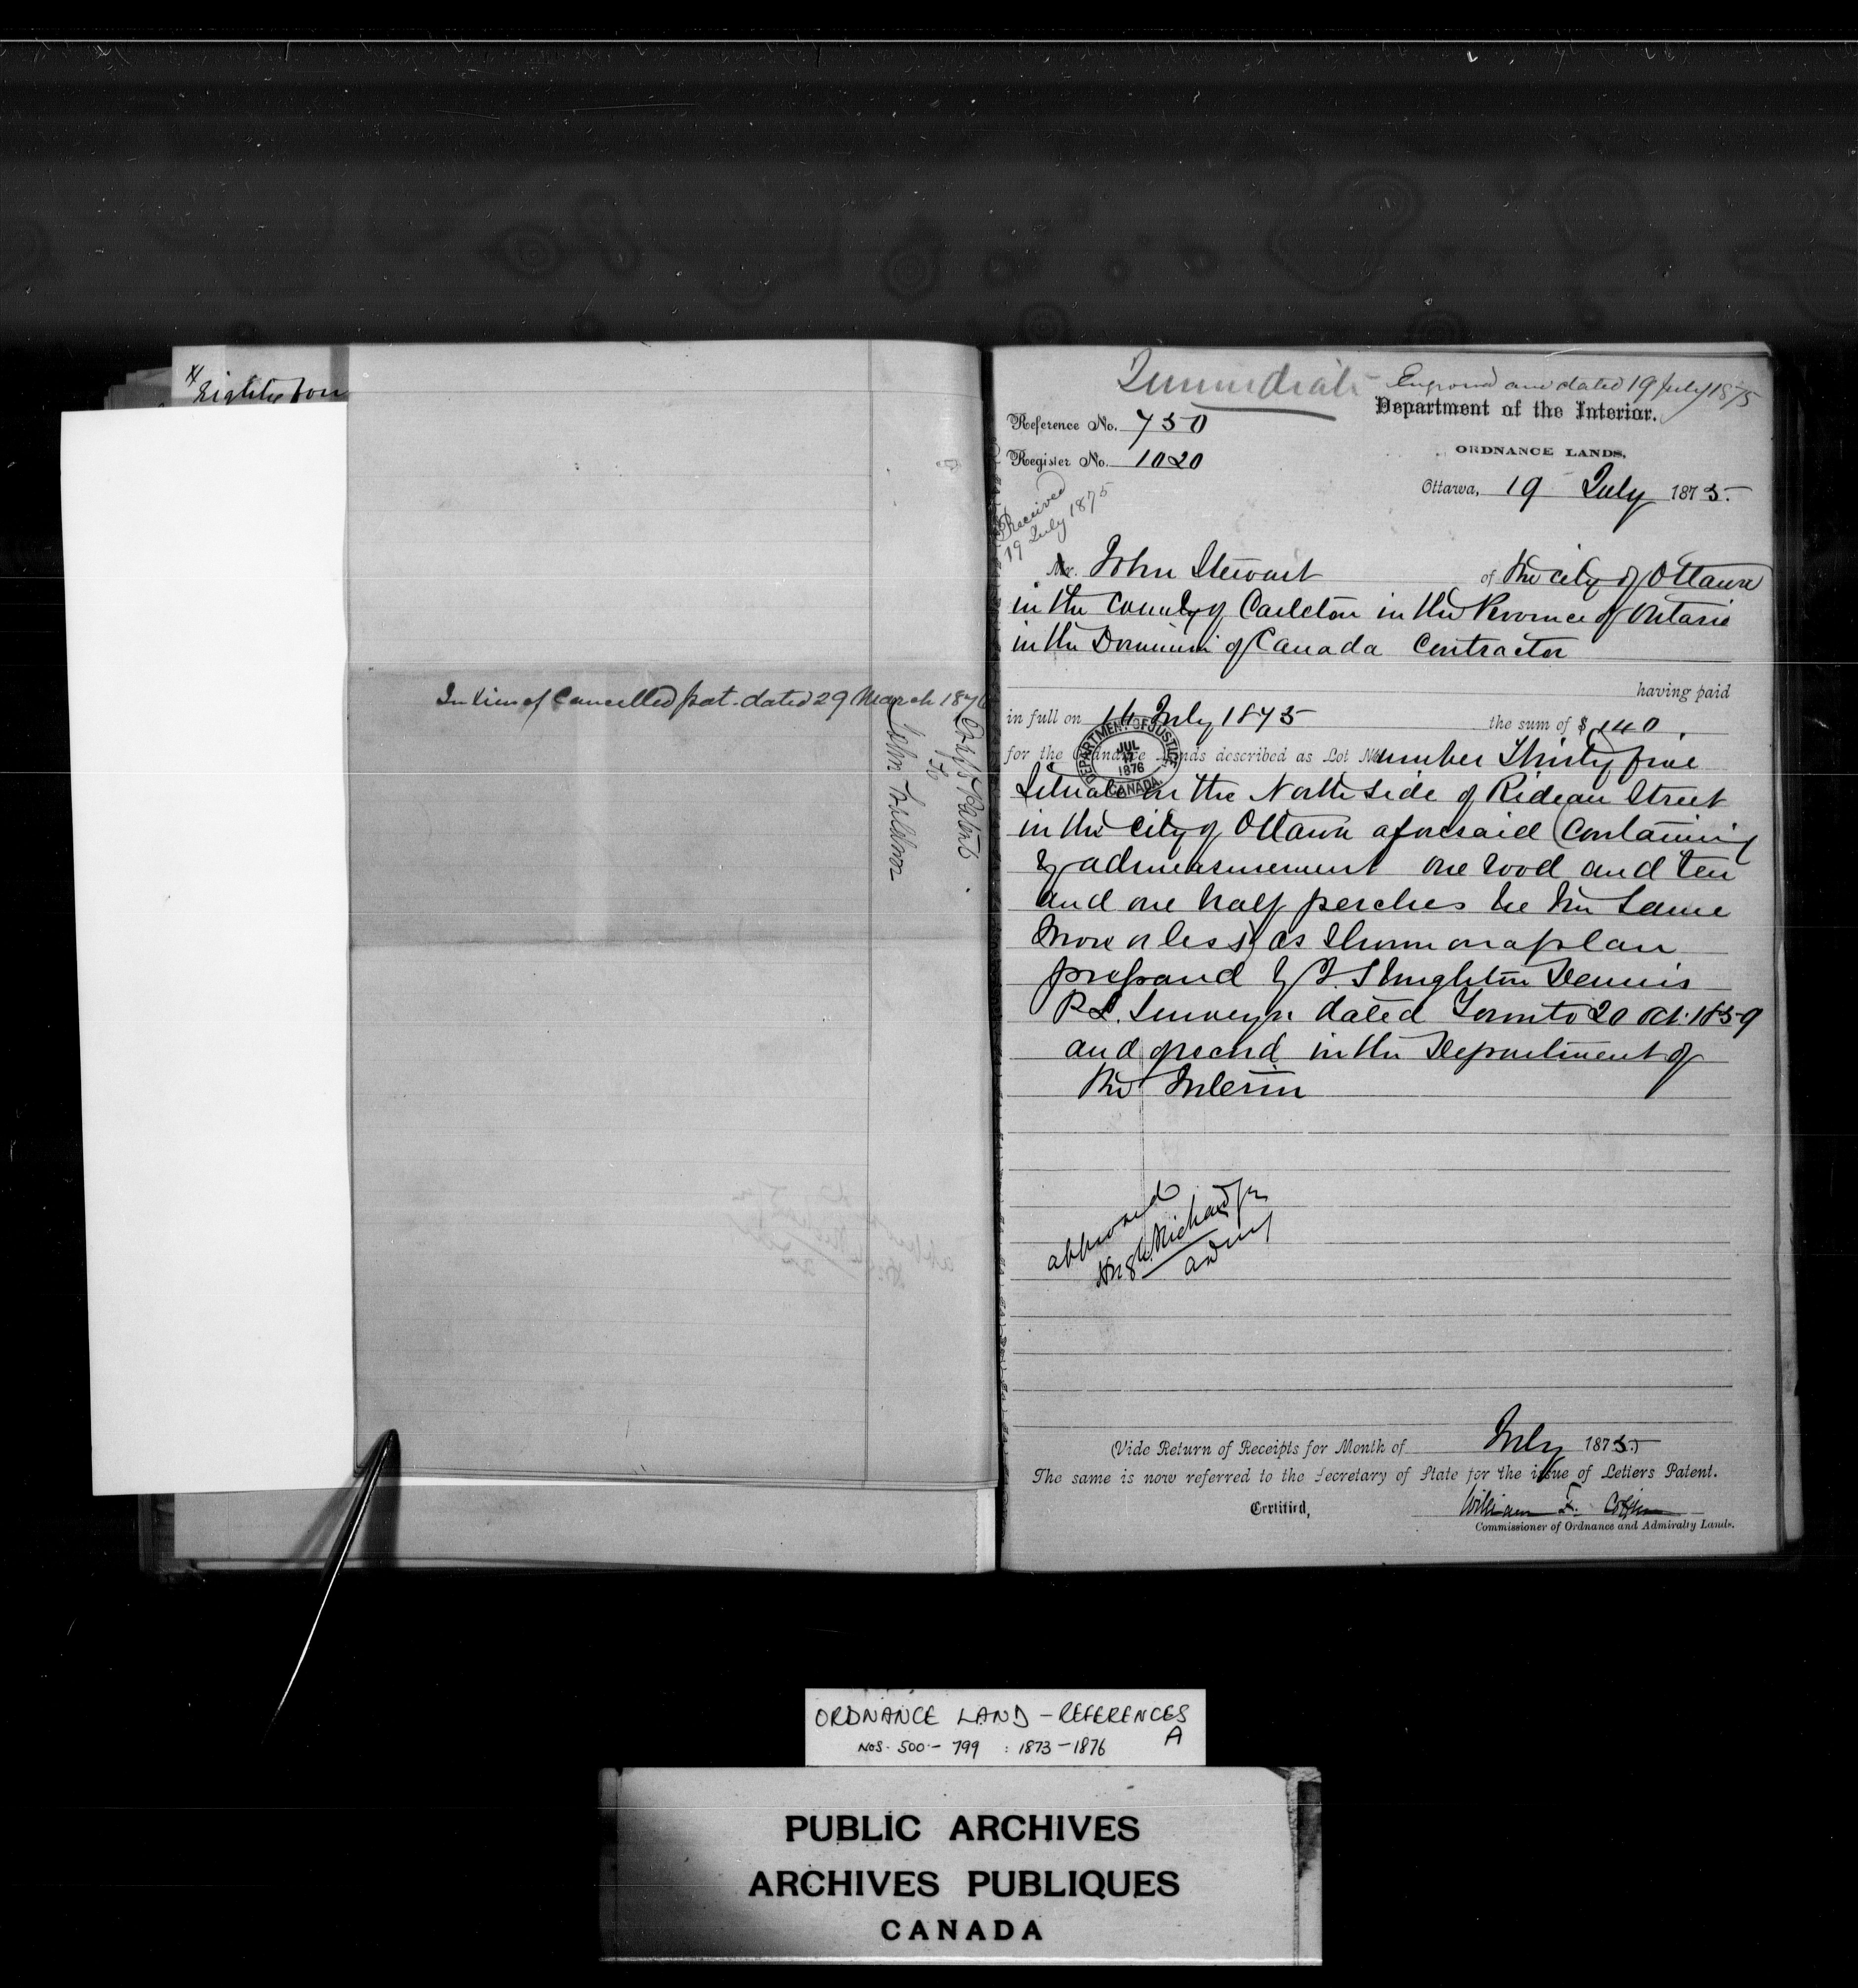 Eighty four
In lieu of Cancelled pat. dated 29 March 1876
Copy Patent
to
John
Immediate
Engrossed and dated 19 July 1875
Department of the Interior.
Reference No. 750
ORDNANCE LANDS,
Register No. 1020
Ottawa, 19 July 1875.
Received
19 July 1875
Mr. John Stewart of the City of Ottawa
in the County of Carleton in the Province of Ontario
in the Dominion of Canada Contractor
having paid
in full on 14 July 1875 the sum of $140.
for the Ordnance Lands described as Lot Number Thirty five
DEPARTMENT OF JUSTICE
JUL
17
1876
CANADA.
Situate on the North side of Rideau Street
in the City of Ottawa aforesaid (Containing
by admeasurement one rood and ten
and one half perches be the same
more or less) as shown on a plan
prepared by J. Stoughton Dennis
P.L. Surveyor dated Toronto 20 Oct. 1859
and of record in the Department of
the Interior
approved
Hugh Richardson
(Vide Return of Receipts for Month of July 1875.)
The same is now referred to the Secretary of State for the issue of Letters Patent.
Certified,
William F. Coffin
Commissioner of Ordnance and Admiralty Lands.
ORDNANCE LAND - REFERENCES
NOS. 500 - 799 : 1873 - 1876 A
PUBLIC ARCHIVES
ARCHIVES PUBLIQUES
CANADA